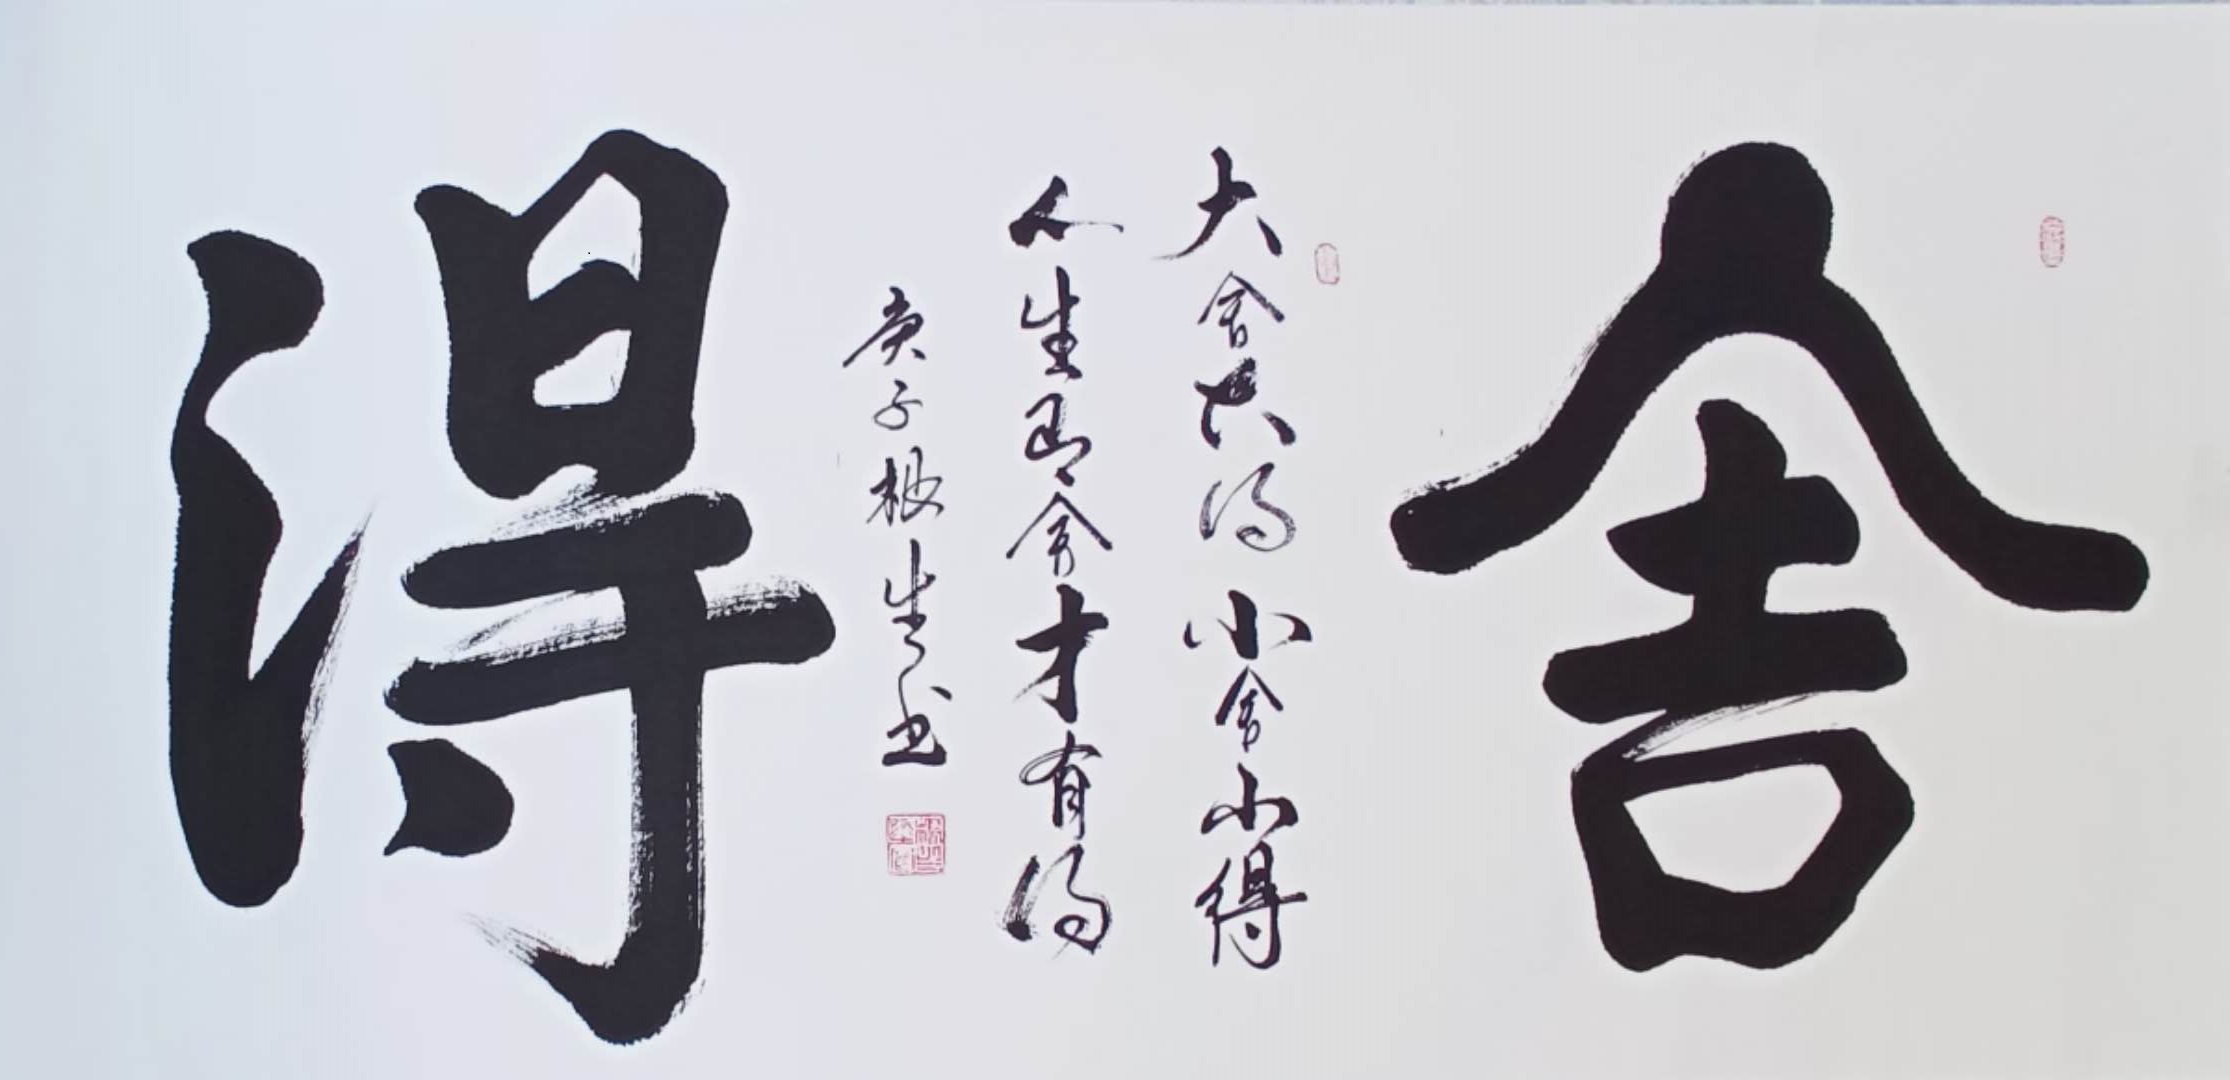 舍
大舍大得小舍小得
人生舍才有得
庚子根生书
得